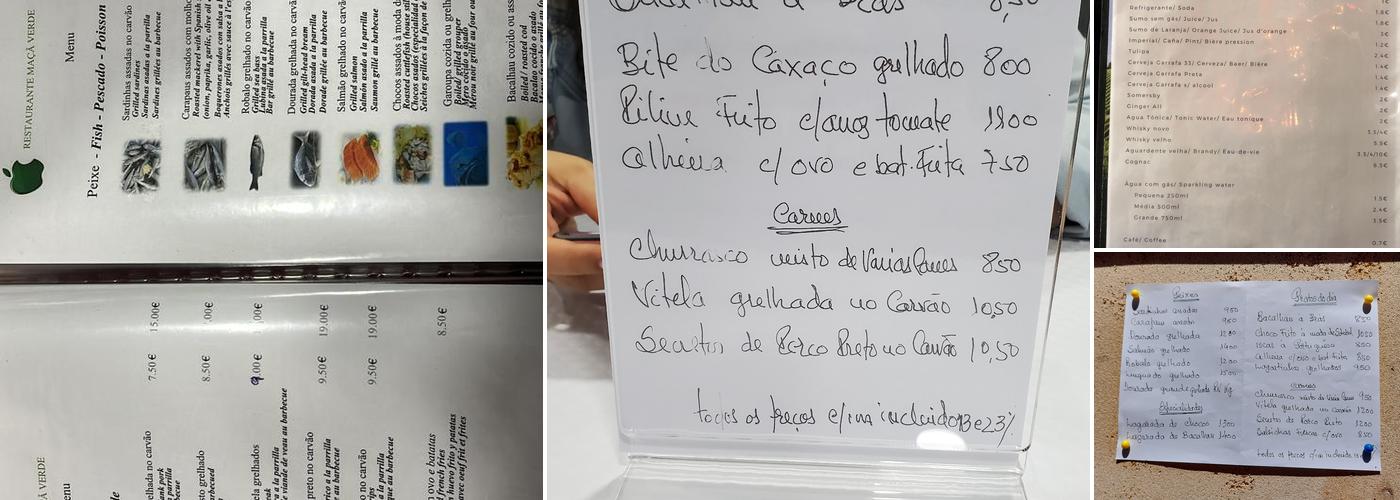 RESTAURANTE MAÇÃ VERDE
Menu
Peixe - Fish - Pescado - Poisson
Sardinhas assadas no carvão
Grilled sardines
Sardinas asadas a la parrilla
Sardines grillées au barbecue
Carapaus assados com molho
Roasted mackerel with Spanish
(onion, paprika, garlic, olive oil
Boquerones asados con salsa
Anchois grillés avec sauce à l'es
Robalo grelhado no carvão
Grilled sea bass
Lubina asada a la parrilla
Bar grillé au barbecue
Dourada grelhada no carvão
Grilled gilt-head bream
Dorada asada a la parrilla
Dorade grillée au barbecue
Salmão grelhado no carvão
Grilled salmon
Salmón asado a la parrilla
Saumon grillé au barbecue
Chocos assados à moda da
Roasted cuttlefish (house
Chocos asados (especialidad
Seiches grillées à la façon de
Garoupa cozida ou grelh
Boiled / grilled grouper
Mero cocido o asado
Mérou noir grillé au four ou
Bacalhau cozido ou ass
Boiled / roasted cod
Bacalao cocido o asado
VERDE
enu
elhada no carvão
7.50 €
15.00€
parrilla
sto grelhado
8.50 €
.00€
ela grelhados
.00 €
.00€
a la parrilla
de viande de veau au barbecue
preto no carvão
9.50 €
19.00€
rico a la parrilla
au barbecue
no carvão
9.50€
19.00€
a la parrilla
que au barbecue
ovo e batatas
8.50€
d french fries
huevo frito y patatas
avec oeuf frit et frites
Bife do Caxaço grelhado 800
Filive Frito c/arroz tomate 1100
Alheira c/ovo e bat. Frita 750
Carnes
Churrasco misto de Varias Carnes 850
Vitela grelhada no Carvão 1050
Secretos de Porco Preto no Carvão 10,50
todos os preços c/iva incluido 13 e 23%
Refrigerante/ Soda
Sumo sem gás/ Juice/ Jus
Sumo de Laranja/ Orange Juice/ Jus d'orange
Imperial/ Caña/ Pint/ Bière pression
Tulipa
Cerveja Garrafa 33/ Cerveza/ Beer/ Bière
Cerveja Garrafa Preta
Cerveja Garrafa s/ alcool
Somersby
Ginger All
Água Tónica/ Tonic Water/ Eau tonique
Whisky novo
Whisky velho
Aguardente velha/ Brandy/ Eau-de-vie
Cognac
Água com gás/ Sparkling water
Pequena 250ml 1.5€
Média 500ml 2.4€
Grande 750ml 3.5€
Café/ Coffee 0.7€
Peixes
Sardinhas assadas 950
Carapau assado 950
Dourada grelhada 1200
Salmão grelhado 1400
Robalo grelhado 1200
Linguado grelhado 1500
Dourada grande grelhada Kg
Especialidades
Feijoada de chocos 1300
Bacalhau 1400
Pratos do dia
Bacalhau a Bras 850
Choco Frito a moda de Setubal 1050
Iscas a Portuguesa 850
Alheira c/ovo e bat Frita 850
grelhados 950
Carnes
Churrasco misto de Varias Carnes 950
Vitela grelhada no Carvão 1200
Secretos de Porco Preto 1200
Salsichas Frescas c/ovo 850
todos os preços c/iva incluido